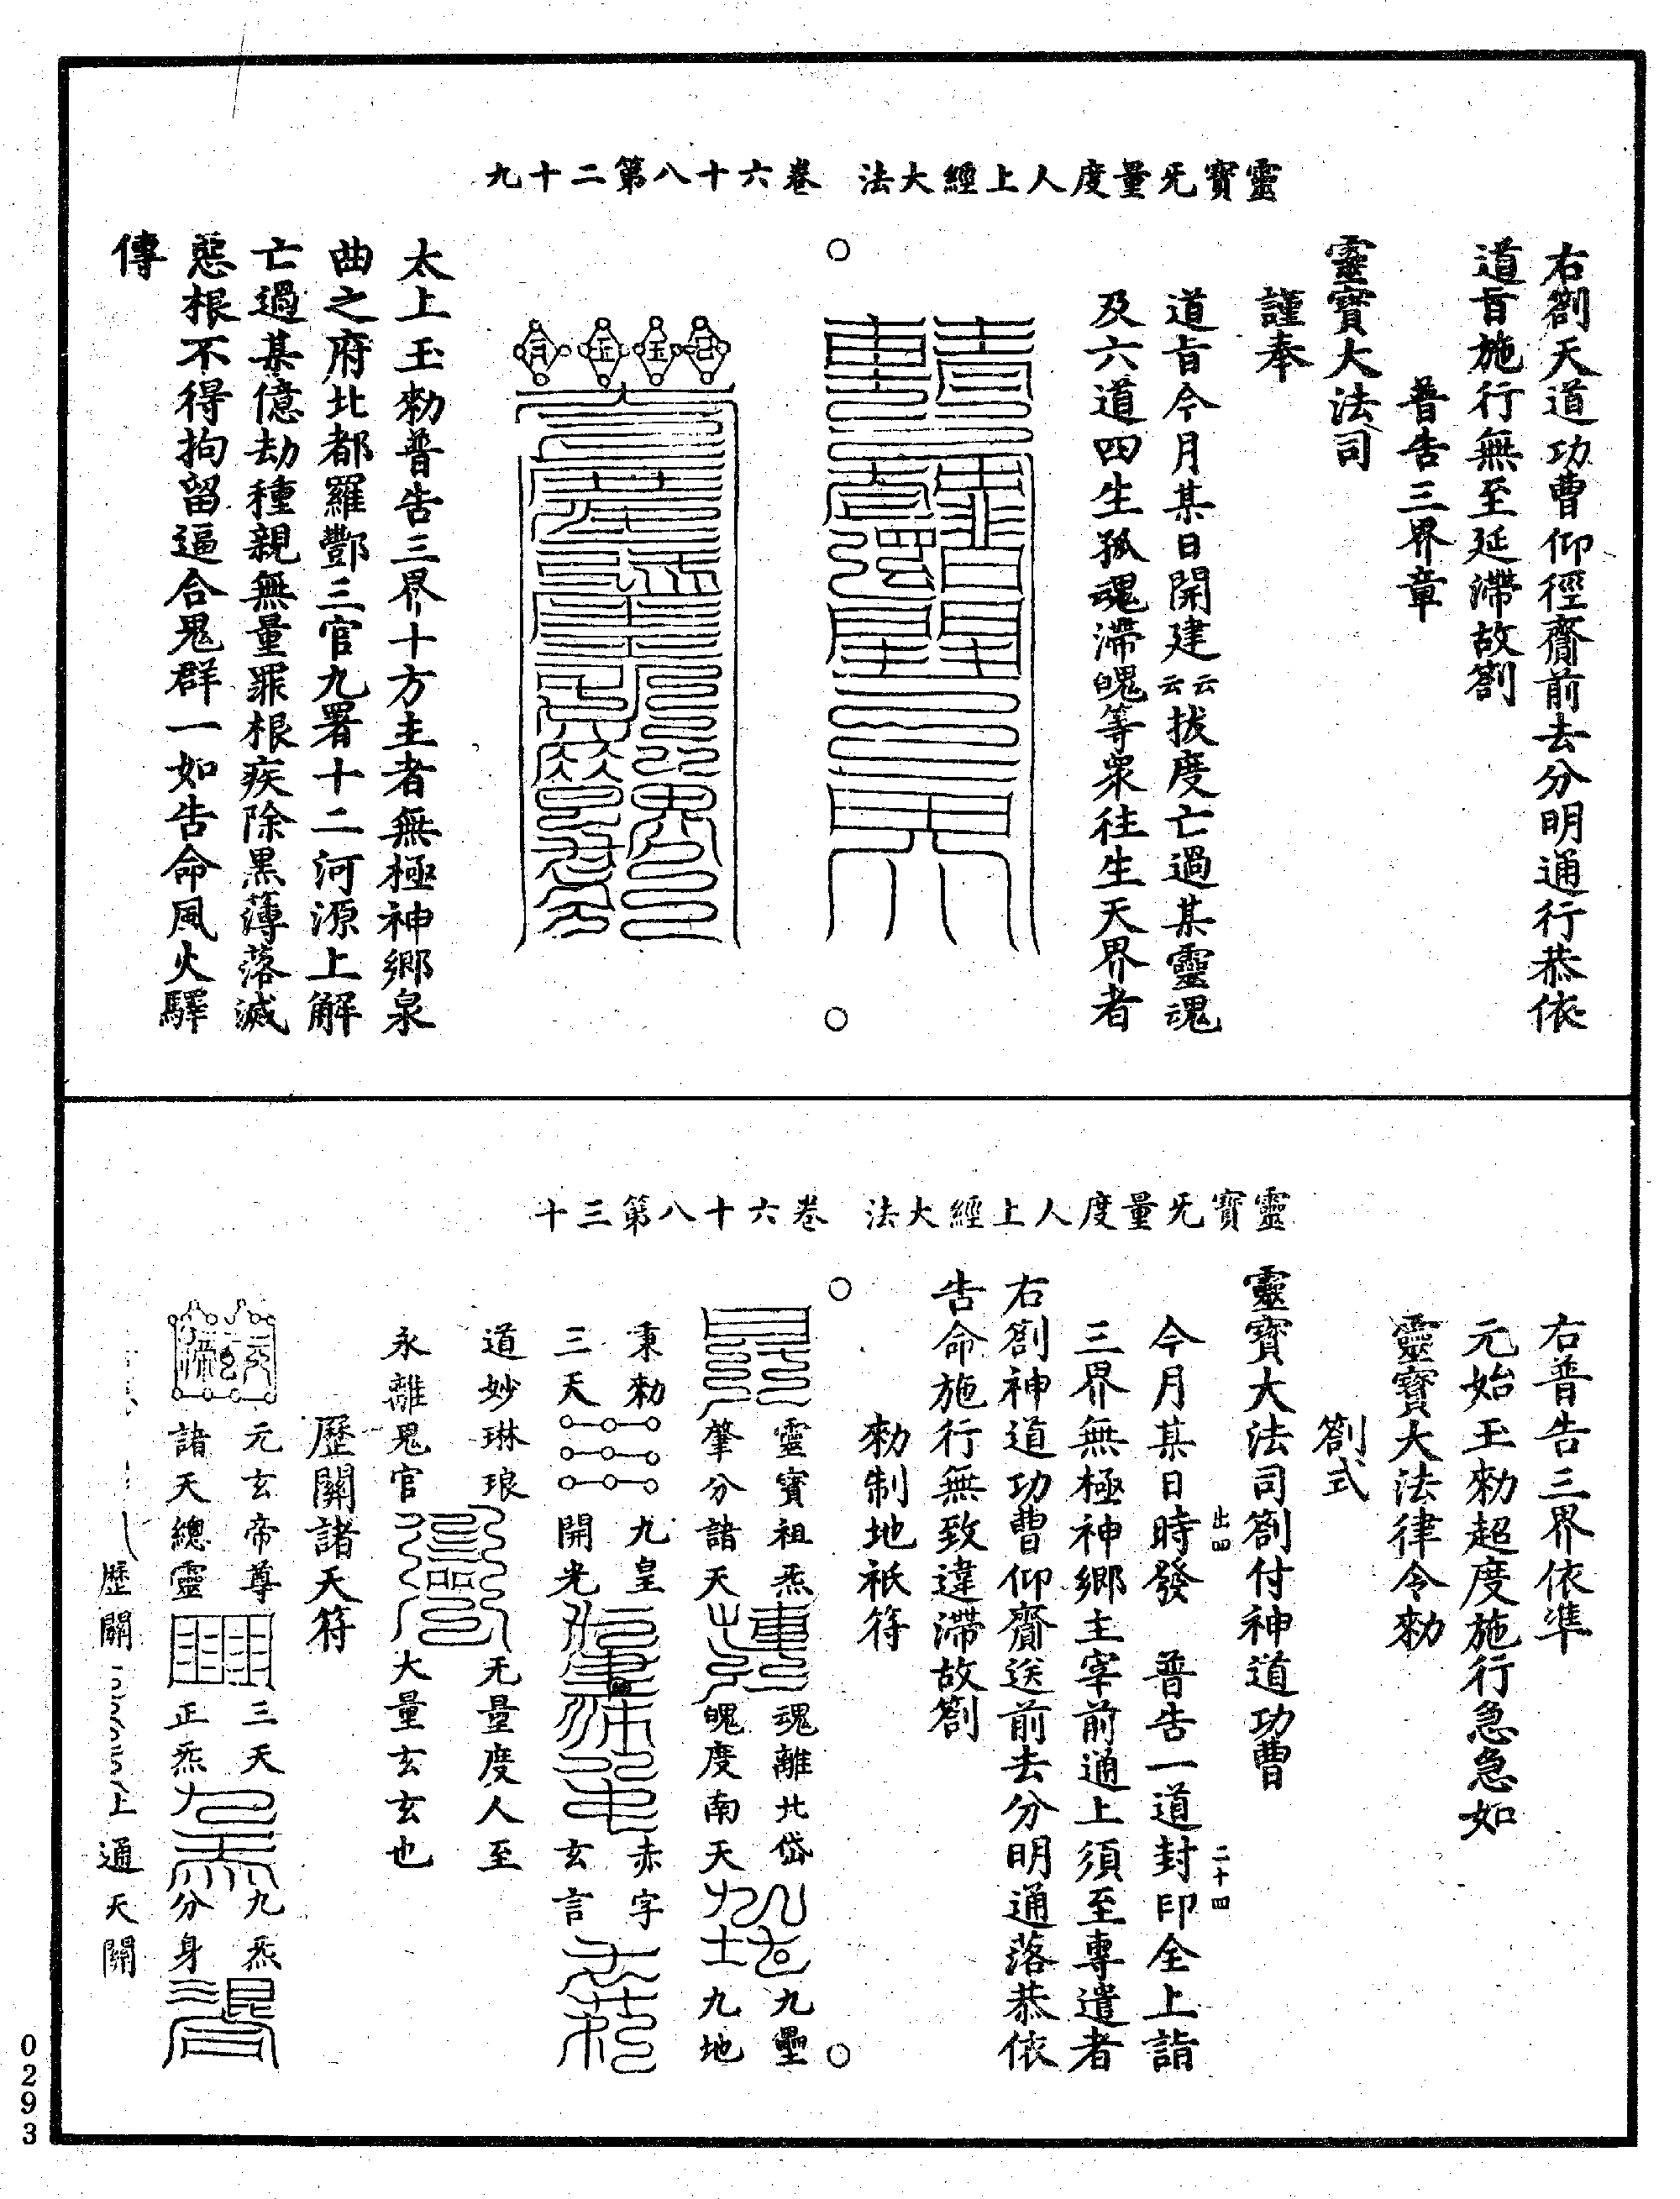 靈寳无量度人上經大法　卷六十八第二十九
右劄天道功曹仰徑齎前去分明通行恭依
道旨施行無至延滯故劄
普告三界章
靈寳大法司
謹奉
道旨今月某日開建云云拔度亡過某靈魂
及六道四生孤魂滯魄等衆往生天界者
太上玉勑普告三界十方主者無極神鄉泉
曲之府北都羅酆三官九署十二河源上解
亡過某億劫種親無量罪根疾除黒薄落滅
惡根不得拘留逼合鬼群一如告命風火驛
傳
靈寳无量度人上經大法　卷六十八第三十
右普告三界依準
元始玉勑超度施行急急如
靈寳大法律令勑
劄式
靈寳大法司劄付神道功曹
今月某日時發　普告一道封印全上詣
三界無極神鄉主宰前通上須至專遣者
右劄神道功曹仰齎送前去分明通落恭依
告命施行無致違滯故劄
勑制地祇符
靈寳祖炁　魂離北岱　九壘
肇分諸天　魄度南天　九地
秉勑　九皇　赤字
三天　開光　玄言
道妙琳琅　无量度人至
永離鬼官　大量玄玄也
歷關諸天符
元玄帝尊　三天　九炁
諸天總靈　正炁　分身
歷關　上通天關
0293